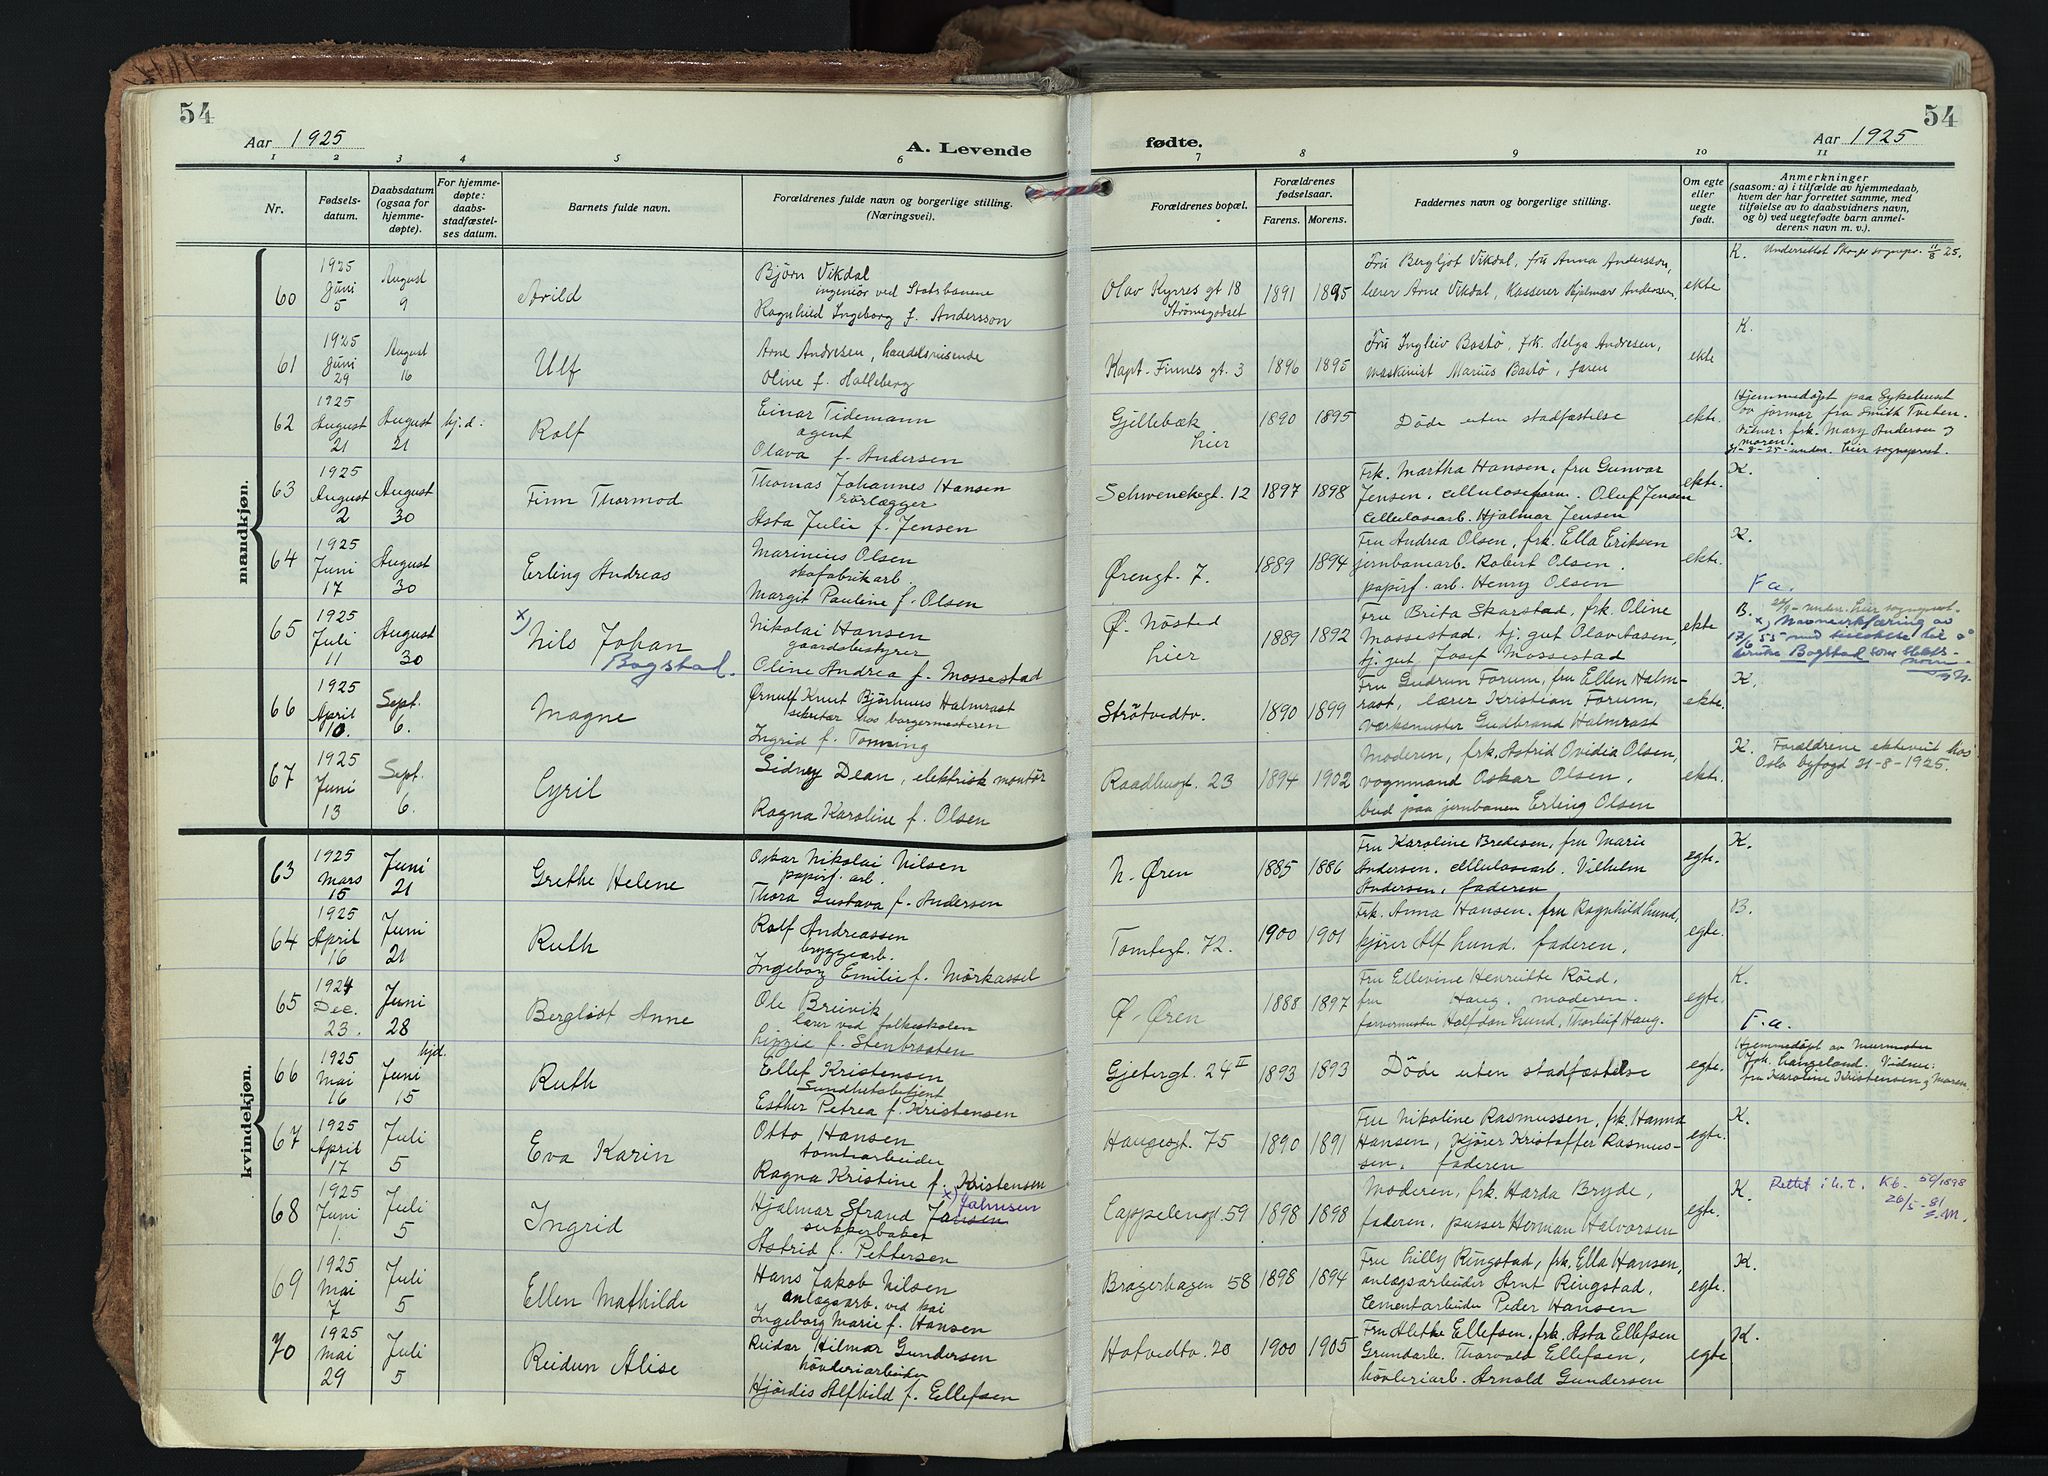 54
54
Aar 1925
A. Levende
fødte.
Aar 1925
1 2 3 4 5 6 7 8 9 10 11
Nr.
Fødsels-
datum.
Daabsdatum
(ogsaa for
hjemme-
døpte).
For hjemme-
døpte:
daabs-
stadfæstel-
ses datum.
Barnets fulde navn.
Forældrenes fulde navn og borgerlige stilling.
(Næringsvei).
Forældrenes bopæl.
Forældrenes
fødselsaar.
Farens. Morens.
Faddernes navn og borgerlige stilling.
Om egte
eller
uegte
født.
Anmerkninger
(saasom: a) i tilfælde av hjemmedaab,
hvem der har forrettet samme, med
tilføielse av to daabsvidners navn,
og b) ved uegtefødte barn anmel-
derens navn m. v.).
mandkjøn.
60
1925
Juni
5
August
9
Arild
Bjørn Vikdal
ingeniør ved Statsbanene
Ragnhild Ingeborg f. Andersson
Olav Kyrres gt 18
Strømsgodset
1891 1895
Fru Bergljot Vikdal, fru Anna Andersson,
lærer Arne Vikdal, Kasserer Hjalmar Andersen.
ekte
K. Underrettet sognepr. 11/8 25.
61
1925
Juni
29
August
16
Ulf
Arne Andresen, handelsreisende
Oline f. Halleberg
Kapt. Finnes gt. 3
1896 1895
Fru Ingleiv Bastø, frk. Helga Andresen,
maskinist Marius Bastø, faren
ekte
K.
62
1925
August
21
August
21
hj.d.
Rolf
Einar Tidemann
agent
Olava f. Andersen
Gjellebæk
Lier
1890 1895
Døde uten stadfæstelse
ekte.
Hjemmedøpt paa Sykehuset
av jormor frk Smith Tveten.
Vidner: frk. Mary Andersen og
moren.
31-8-25 under. Lier sogneprest.
63
1925
August
2
August
30
Finn Thormod
Thomas Johannes Hansen
rørlægger
Asta Julie f. Jensen
Schwenckegt. 12
1897 1898
Frk. Martha Hansen, fru Gunvor
Jensen, cellulosearb. Oluf Jensen
Cellulosearb. Hjalmar Jensen
ekte.
K.
64
1925
Juni
17
August
30
Erling Andreas
Marinius Olsen
skofabrikarb.
Margit Pauline f. Olsen
Ørengt. 7.
1889 1894
Fru Andrea Olsen, frk. Ella Eriksen
jernbanearb. Robert Olsen.
papirf. arb. Henry Olsen
ekte.
K.
65
1925
Juli
11
August
30
x) Nils Johan
Bogstad.
Nikolai Hansen
gaardsbestyrer
Oline Andrea f. Mossestad
Ø. Nøsted
Lier
1889 1892
Fru Brita Skarstad, frk. Oline
Mossestad, tj. gut Olav Aasen,
tj. gut Josef Mossestad
ekte
F a.
B. under. Lier sogneprest.
x) Navneerklæring av
17/6 55 med beskikkelse til å
bruke Bogstad som slekts-
navn.
66
1925
April
10.
Sept.
6.
Magne
Ørnulf Knut Bjørhuus Halmrast
sekretær hos borgermesteren
Ingrid f. Tønning
Strøtvedtv.
1890 1899
Fru Gudrun Forum, fru Ellen Halm-
rast, lærer Kristian Forum,
værksmester Gudbrand Halmrast
ekte.
K.
67
1925
Juni
13
Sept.
6.
Cyril
Sidney Dean, elektrisk montør
Ragna Karoline f. Olsen
Raadhusgt. 23
1894 1902
Moderen, frk. Astrid Ovidia Olsen,
vognmand Oskar Olsen,
bud paa jernbanen Erling Olsen
ekte.
K. Forældrene ekteviet hos
Oslo byfogd 21-8-1925.
kvindekjøn.
63
1925
Mars
15
Juni
21
Grethe Helene
Oskar Nikolai Nilsen
papirf. arb.
Thora Gustava f. Andersen
N. Øren
1885 1886
Fru Karoline Bredesen, fru Marie
Andersen, cellulosearb. Vilhelm
Andersen, faderen,
egte.
K.
64
1925
April
16
Juni
21
Ruth
Rolf Andreassen
bryggearb.
Ingeborg Emilie f. Mørkassel
Tomtegt. 72.
1900 1901
Frk. Anna Hansen. fru Ragnhild Lund,
kjører Alf Lund. faderen.
egte.
B.
65
1924
Dec.
23.
Juni
28
Bergljot Anne
Ole Breivik
lærer ved folkeskolen
Lizzie f. Stenbraaten
Ø. Øren
1888 1897
Fru Ellevine Henriette Røed,
fru Haug. moderen.
farvermester Halfdan Lund, Thorleif Haug.
egte.
K.
66
1925
Mai
16
hjd.
Juni
15
Ruth
Ellef Kristensen
Sundhetsbetjent
Esther Petrea f. Kristensen
Gjetergt. 24 II
1893 1893
Døde uten stadfæstelse
egte.
F. a.
Hjemmedøpt av Murmester
Joh. Langeland. Vidner:
fru Karoline Kristensen og Moren.
67
1925
April
17
Juli
5
Eva Karin
Otto Hansen
tomtearbeider
Ragna Kristine f. Kristensen
Haugesgt. 75
1890 1891
Fru Nikoline Rasmussen, frk. Hanna
Hansen, Kjører Kristoffer Rasmus-
sen. faderen
egte.
K.
68
1925
Juni
1.
Juli
5
Ingrid
x) Jahnsen
Hjalmar Strand Jansen
sukkerbaker
Astrid f. Pettersen
Cappelengt. 59
1898 1898
Moderen, frk. Harda Bryde,
faderen, pusser Herman Halvorsen
egte.
K. Rettet i h.t. Kb. 50/1898
26/5-81
69
1925
Mai
7
Juli
5
Ellen Mathilde
Hans Jakob Nilsen
anlægsarb. ved kai
Ingeborg Marie f. Hansen
Bragerhagen 58
1898 1894
Fru Lilly Ringstad, frk. Ella Hansen,
anlægsarbeider Arnt Ringstad,
Cementarbeider Peder Hansen
egte.
K.
70
1925
Mai
29
Juli
5
Reidun Alise
Reidar Hilmar Gundersen
høvleriarbeider
Hjørdis Alfhild f. Ellefsen
Hotvedtv. 20
1900 1905
Fru Alethe Ellefsen, frk. Asta Ellefsen
Grundarb. Thorvald Ellefsen,
høvleriarb. Arnold Gundersen
egte
K.